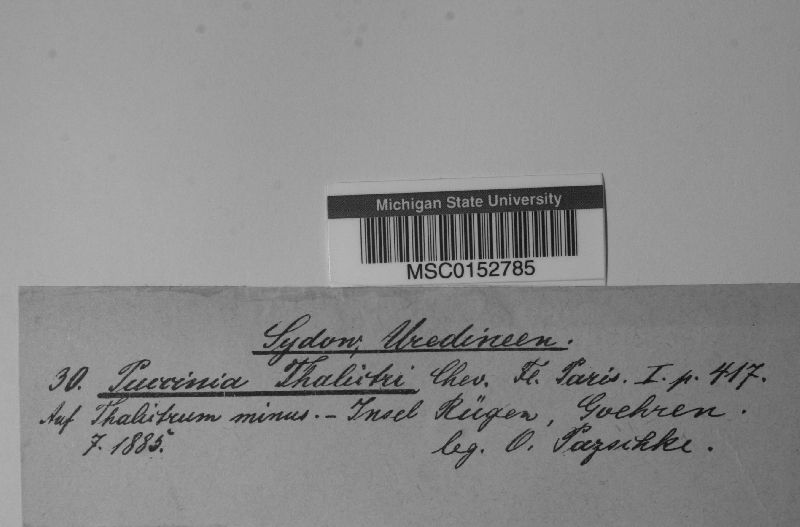 Michigan State University
MSC0152785
Sydow, Uredineen.
30. Puccinia Thalictri Chev. Fl. Paris. I. p. 417.
Auf Thalictrum minus. - Insel Rügen, Goehren.
7. 1885. leg. O. Pazschke.